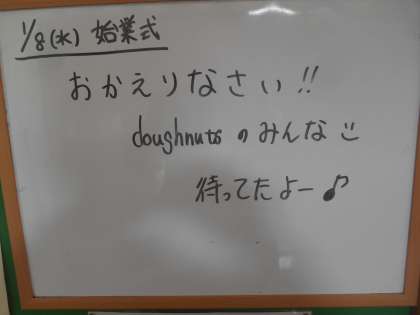 1/8(水) 始業式
おかえりなさい!!
doughnutsのみんな
待ってたよー♪